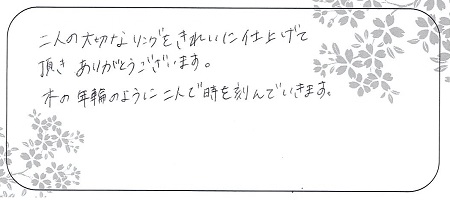 二人の大切なリングをきれいに仕上げて
頂きありがとうございます。
木の年輪のように二人で時を刻んでいきます。